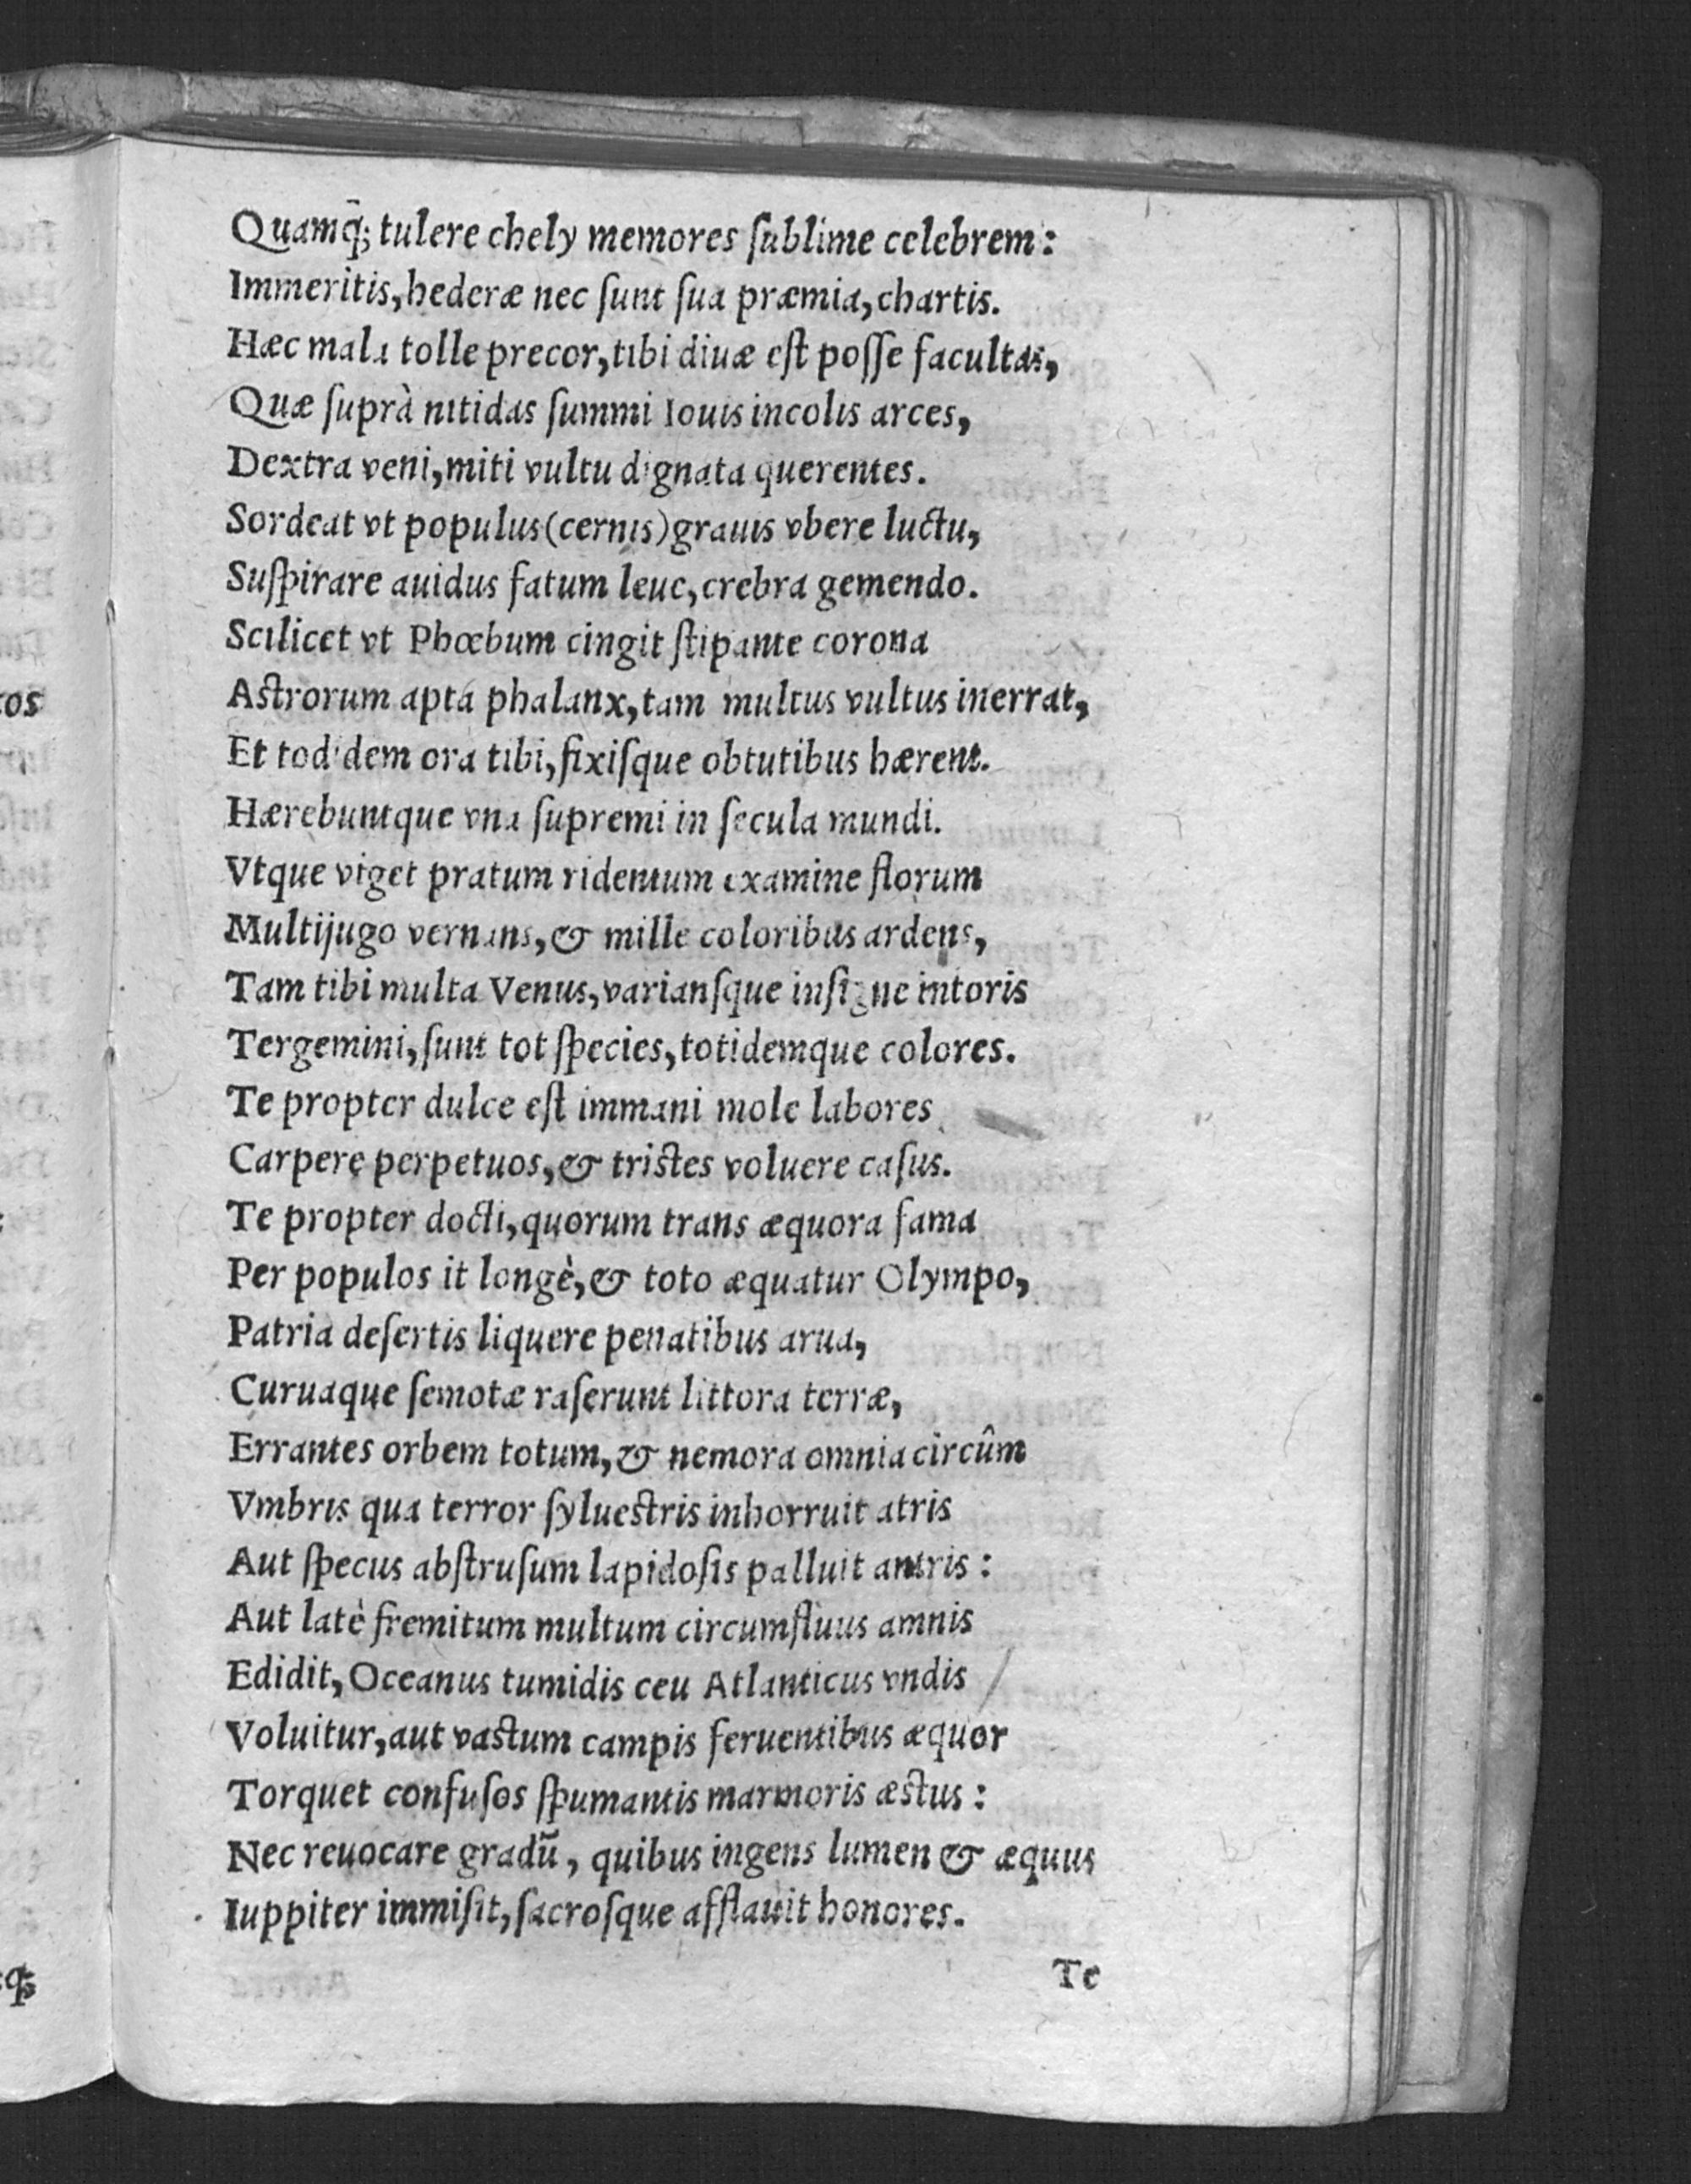 Quamq̃; tulere chely memores ſublime celebrem:
Immeritis, hederæ nec ſunt ſua præmia, chartis.
Hæc mala tolle precor, tibi diuæ eſt poſſe facultas,
Quæ ſuprà nitidas ſummi Iouis incolis arces,
Dextra veni, miti vultu dignata querentes.
Sordeat vt populus (cernis) grauis vbere luctu,
Suſpirare auidus fatum leue, crebra gemendo.
Scilicet vt Phœbum cingit ſtipante corona
Astrorum apta phalanx, tam multus vultus inerrat,
Et todidem ora tibi, fixiſque obtutibus hærent.
Hærebuntque vna ſupremi in ſecula mundi.
Vtque viget pratum ridentum examine florum
Multijugo vernans, & mille coloribus ardens,
Tam tibi multa Venus, varianſque inſigne intoris
Tergemini, ſunt tot ſpecies, totidemque colores.
Te propter dulce eſt immani mole labores
Carpere perpetuos, & tristes voluere caſus.
Te propter docti, quorum trans æquora fama
Per populos it longè, & toto æquatur Olympo,
Patria deſertis liquere penatibus arua,
Curuaque ſemotæ raſerunt littora terræ,
Errantes orbem totum, & nemora omnia circûm
Vmbris qua terror ſyluestris inhorruit atris
Aut ſpecus abſtruſum lapidoſis palluit antris:
Aut latè fremitum multum circumfluus amnis
Edidit, Oceanus tumidis ceu Atlanticus vndis
Voluitur, aut vastum campis feruentibus æquor
Torquet confuſos ſpumantis marmoris æstus:
Nec reuocare gradū, quibus ingens lumen & æquus
Iuppiter immiſit, ſacroſque afflauit honores.
Te